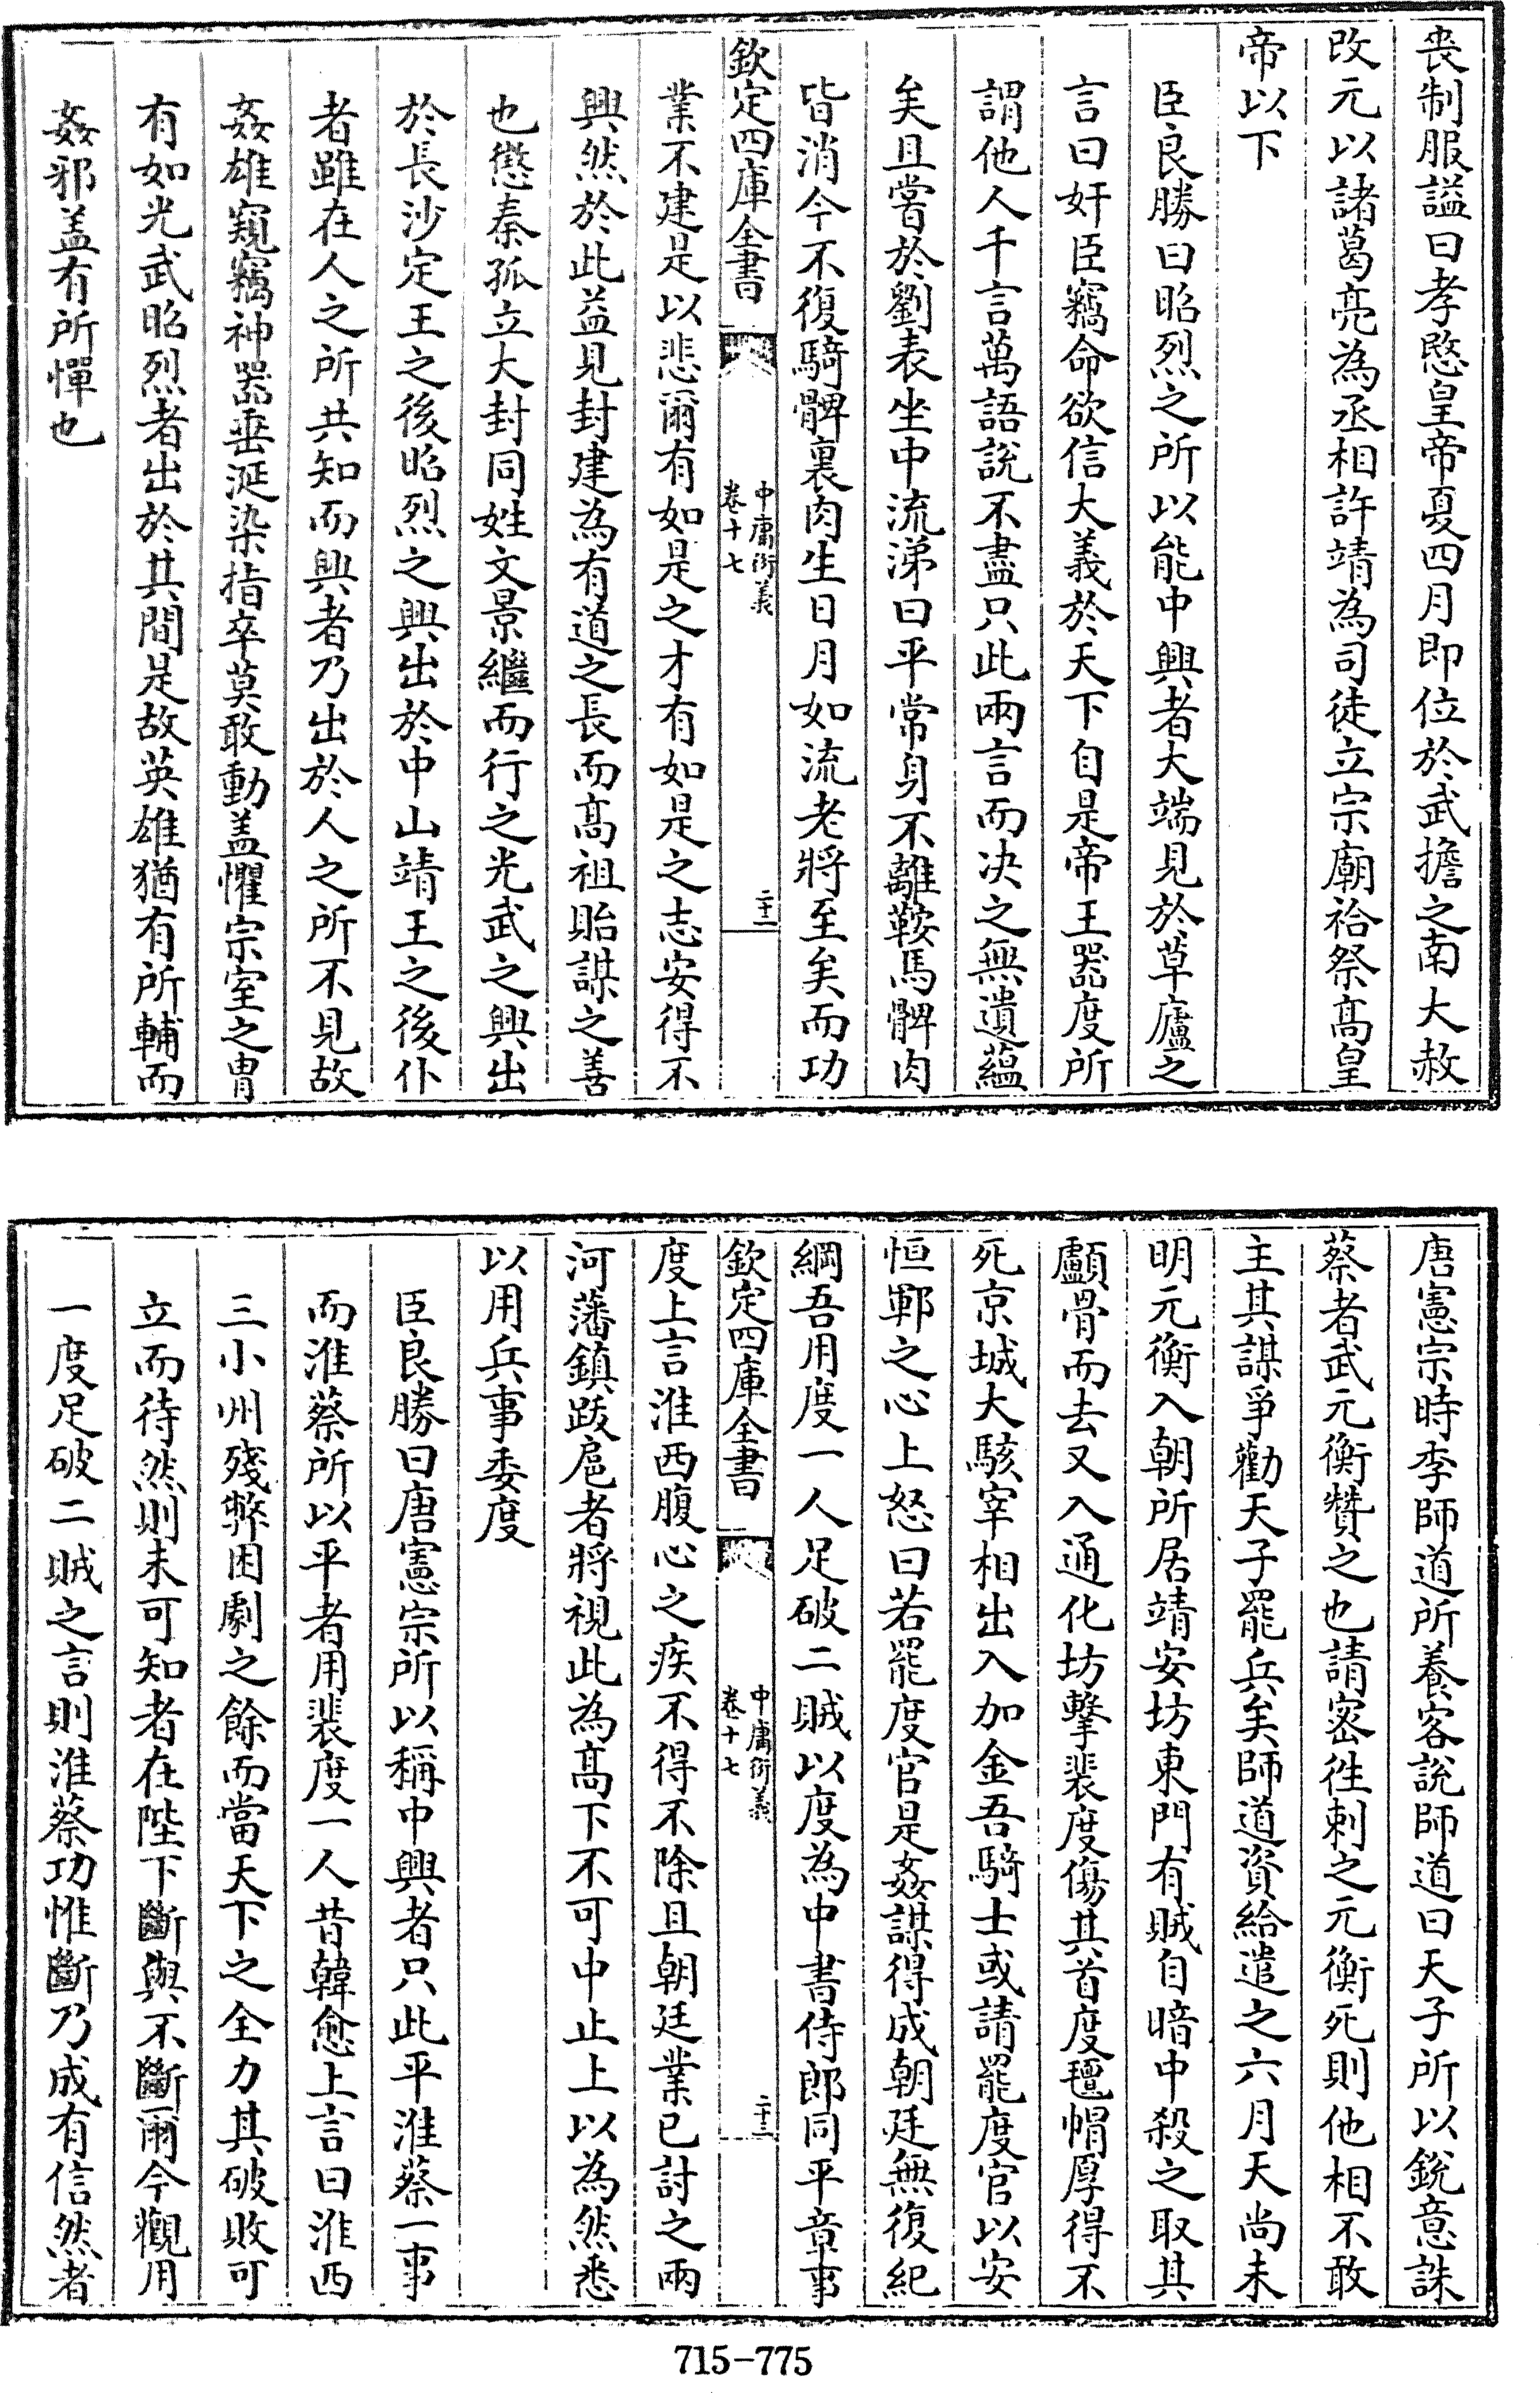 喪制服諡曰孝愍皇帝夏四月即位於武擔之南大赦
改元以諸葛亮為丞相許靖為司徒立宗廟祫祭髙皇
帝以下
臣良勝曰昭烈之所以能中興者大端見於草廬之
言曰奸臣竊命欲信大義於天下自是帝王器度所
謂他人千言萬語說不盡只此兩言而决之無遺蘊
矣且嘗於劉表坐中流涕曰平常身不離鞍馬髀肉
皆消今不復騎髀裏肉生日月如流老將至矣而功
欽定四庫全書
中庸衍義
卷十七
二十二
業不建是以悲爾有如是之才有如是之志安得不
興然於此益見封建為有道之長而髙祖貽謀之善
也懲秦孤立大封同姓文景繼而行之光武之興出
於長沙定王之後昭烈之興出於中山靖王之後仆
者雖在人之所共知而興者乃出於人之所不見故
姦雄窺竊神器垂涎染指卒莫敢動盖懼宗室之冑
有如光武昭烈者出於其間是故英雄猶有所輔而
姦邪盖有所憚也
唐憲宗時李師道所養客說師道曰天子所以銳意誅
蔡者武元衡贊之也請宻徃刺之元衡死則他相不敢
主其謀爭勸天子罷兵矣師道資給遣之六月天尚未
明元衡入朝所居靖安坊東門有賊自暗中殺之取其
顱骨而去又入通化坊擊裴度傷其首度氊帽厚得不
死京城大駭宰相出入加金吾騎士或請罷度官以安
恒鄆之心上怒曰若罷度官是姦謀得成朝廷無復紀
綱吾用度一人足破二賊以度為中書侍郎同平章事
欽定四庫全書
中庸衍義
卷十七
二十三
度上言淮西腹心之疾不得不除且朝廷業已討之兩
河藩鎮跋扈者將視此為髙下不可中止上以為然悉
以用兵事委度
臣良勝曰唐憲宗所以稱中興者只此平淮蔡一事
而淮蔡所以平者用裴度一人昔韓愈上言曰淮西
三小州殘弊困劇之餘而當天下之全力其破敗可
立而待然則未可知者在陛下斷與不斷爾今觀用
一度足破二賊之言則淮蔡功惟斷乃成有信然者
715-775